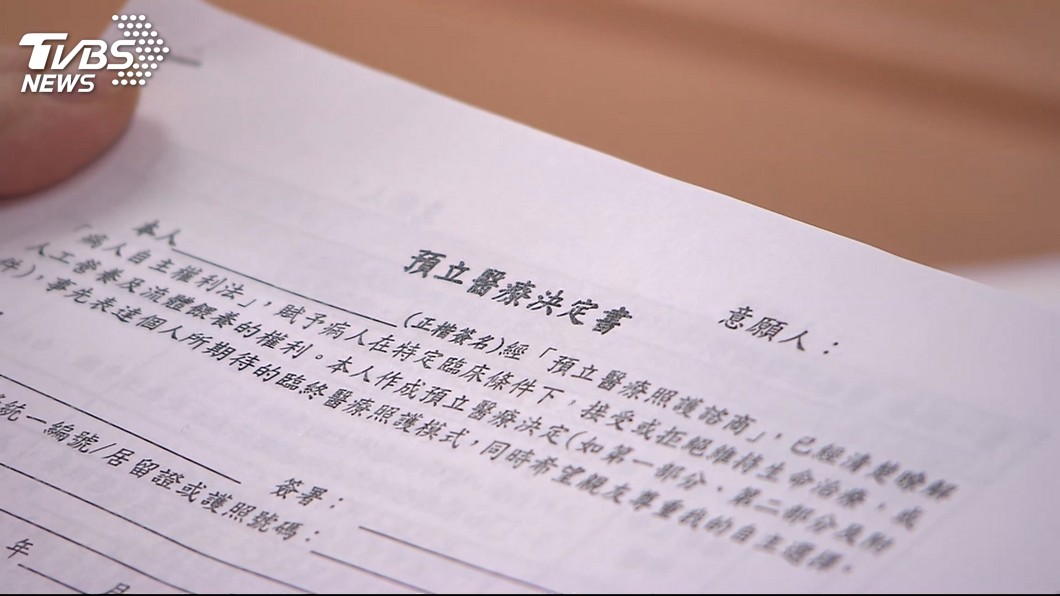 TVBS
NEWS
意願人：
預立醫療決定書
本人 (正楷簽名)經「預立醫療照護諮商」，已經清楚瞭解
「病人自主權利法」，賦予病人在特定臨床條件下，接受或拒絕維持生命治療，或
人工營養及流體餵養的權利。本人作成預立醫療決定(如第一部分、第二部分及附
件)，事先表達個人所期待的臨終醫療照護模式，同時希望親友尊重我的自主選擇。
簽署：
統一編號/居留證或護照號碼：
年 月